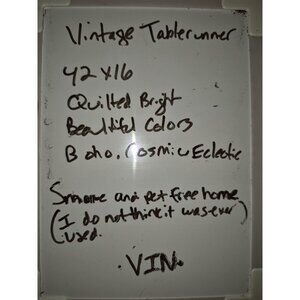 Vintage Tablerunner
42x16
Quilted Bright
Beautiful Colors
Boho, Cosmic Eclectic
Smoke and pet free home
(I do not think it was ever)
used.
·VIN·